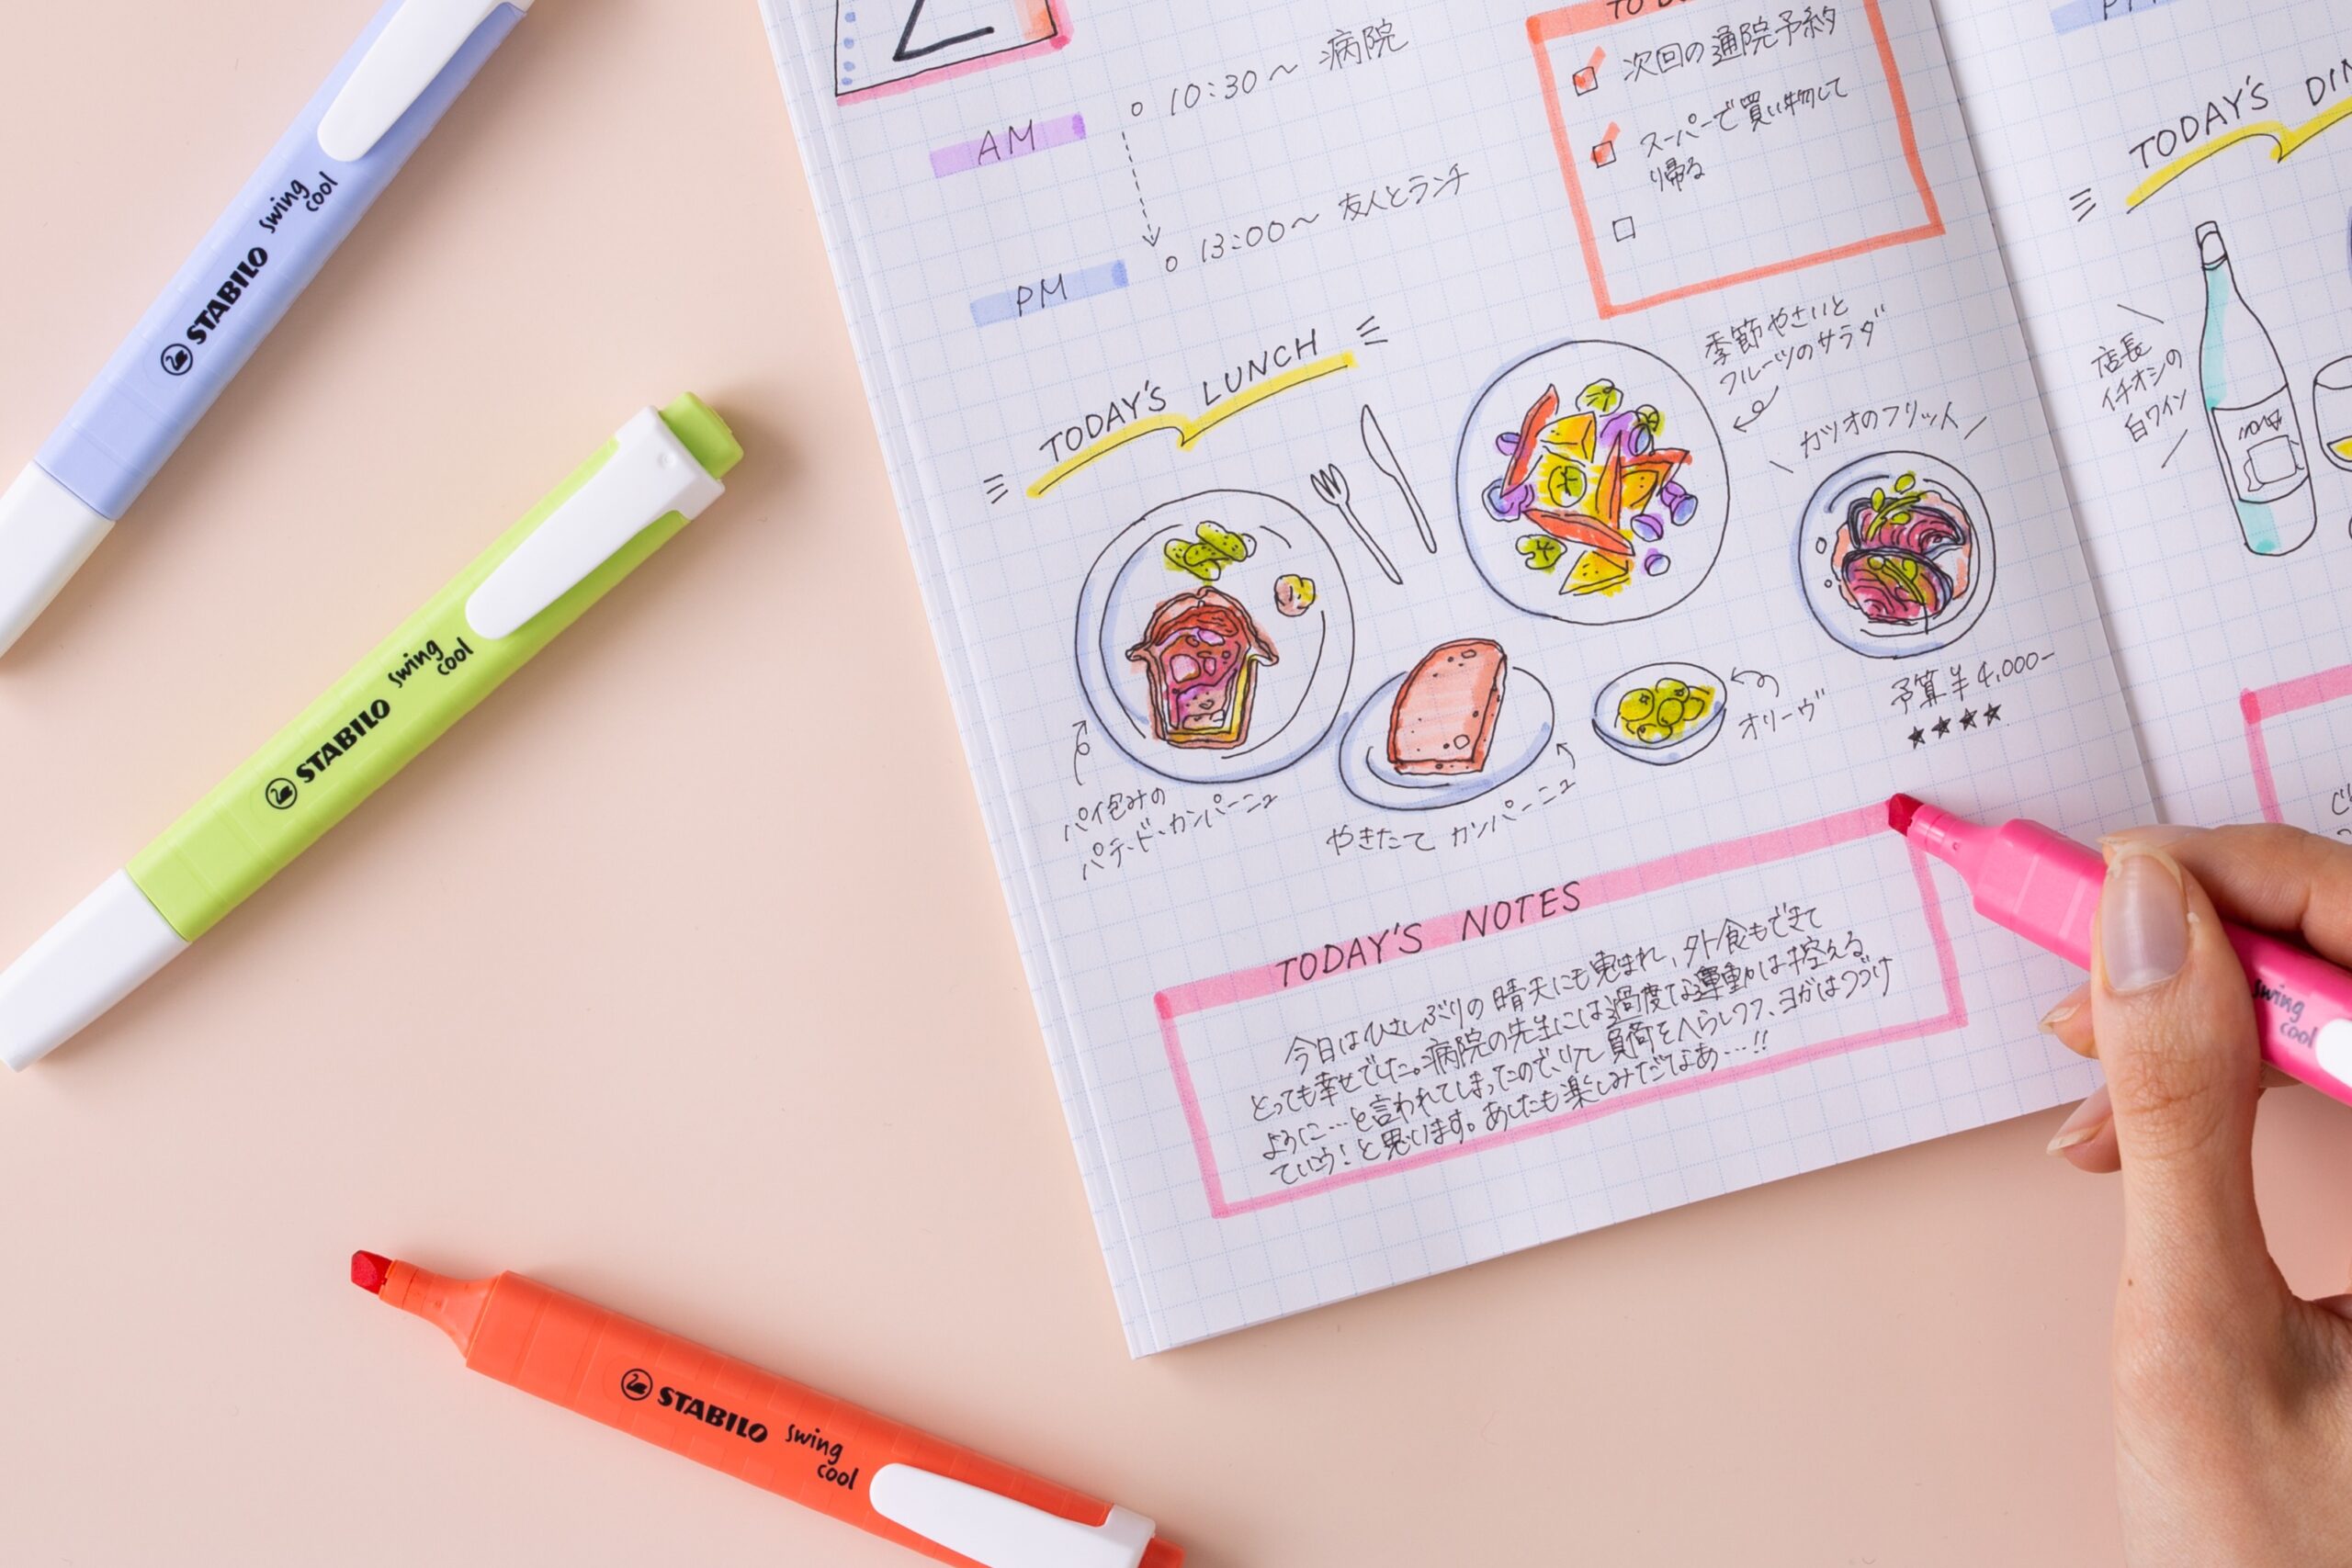 2
AM
10:30〜 病院
PM
13:00〜 友人とランチ
TO DO
次回の通院予約
スーパーで買い物して
り帰る
TODAY'S LUNCH
季節やさいと
フルーツのサラダ
カツオのフリット
パイ包みの
パテ・ド・カンパーニュ
やきたて カンパーニュ
オリーヴ
予算¥4,000-
★★★★
TODAY'S NOTES
今日はひさしぶりの晴天にも恵まれ、外食もできて
とっても幸せでした。病院の先生には過度な運動は控える
ように…と言われてしまったので、少し負荷をへらしつつ、ヨガはつづけ
ていこう!と思います。あしたも楽しみだなあ…!!
TODAY'S
店長
イチオシの
白ワイン
STABILO swing cool
STABILO swing cool
STABILO swing cool
swing cool